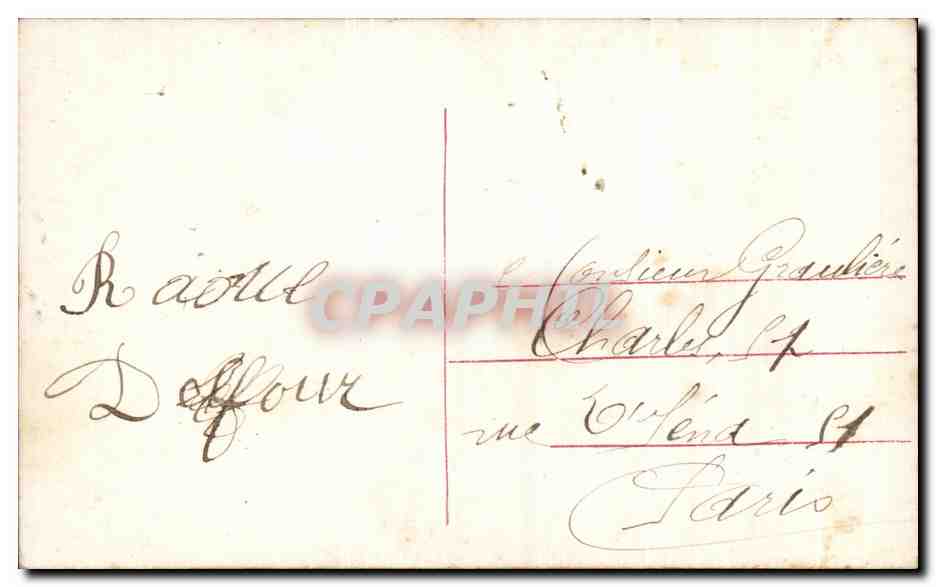 Raoul
Deffour
Monsieur Graulière
Charles, 51
rue 51
Paris
CPAPHIL